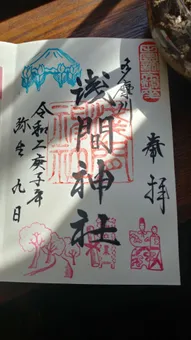 奉拝
多摩川
浅間神社
令和二庚子年
弥生九日